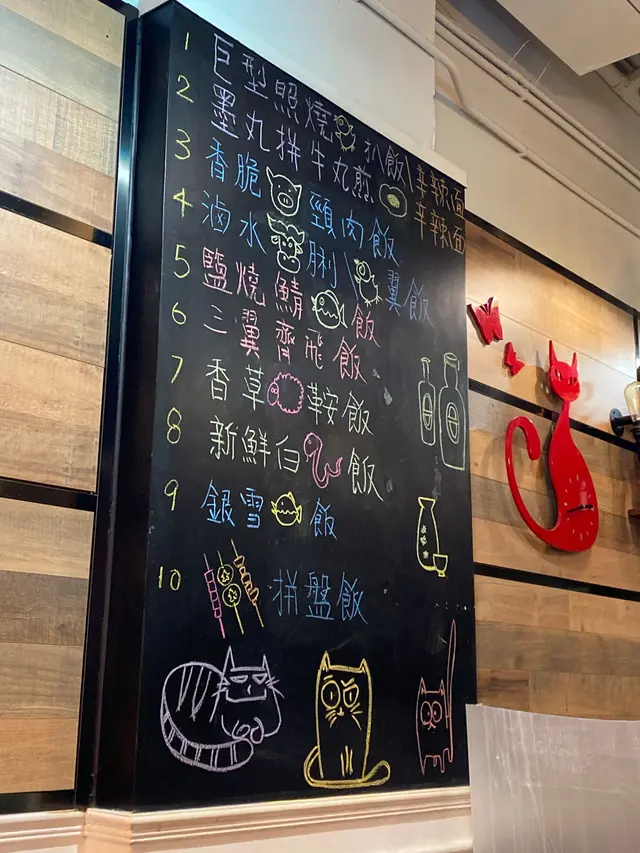 1 巨型照燒扒飯\辛辣面
2 墨丸拼牛丸煎 辛辣面
3 香脆頸肉飯
4 滷水脷\翼飯
5 鹽燒鯖飯
6 三翼齊飛飯
7 香草鞍飯
8 新鮮白飯
9 銀雪飯
10 拼盤飯